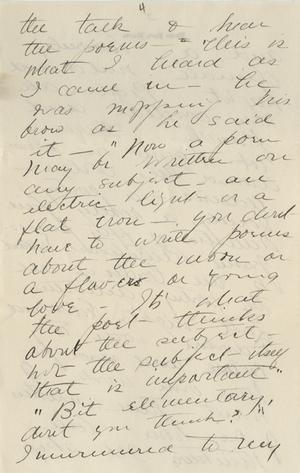 4
the talk & hear
the poems - This is
what I heard as
I came in - he
was mopping his
brow as he said
it - "Now a poem
may be written on
any subject - an
electric light - or a
flat iron - you don't
have to write poems
about the moon or
a flower or young
love - It's what
the poet thinks
about the subject -
not the subject itself
that is important"
"Bit elementary,
don't you think?"
I murmured to my